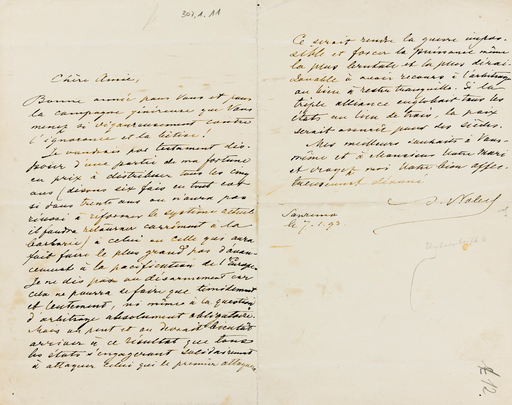 303.A.11
Chère Amie,
Bonne année pour Vous et pour
la campagne généreuse que Vous
menez si vigoureusement contre
l'ignorance et la bêtise!
Je voudrais par testament dis-
poser d'une partie de ma fortune
en prix à distribuer tous les cinq
ans (disons six fois en tout car
si dans trente ans on n'aura pas
réussi à réformer le système actuel
il faudra retourner carrément à la
barbarie) à celui ou celle qui aura
fait faire le plus grand pas d'avan-
cement à la pacification de l'Europe.
Je ne dis pas au désarmement car
cela ne pourra se faire que timidement
et lentement, ni même à la question
d'arbitrage absolument obligatoire.
Mais on peut et on devrait bientôt
arriver à ce résultat que tous
les états s'engageront solidairement
à attaquer celui qui le premier attaque.
Ce serait rendre la guerre impos-
sible et forcer la puissance même
la plus brutale et la plus dérai-
sonnable à avoir recours à l'arbitrage
ou bien à rester tranquille. Si la
triple alliance englobait tous les
états au lieu de trois, la paix
serait assurée pour des siècles.
Mes meilleurs souhaits à Vous-
même et à Monsieur Votre Mari
et croyez moi Votre bien affec-
tueusement dévoué
A. Nobel
Sanremo
le 7.1.93.
12